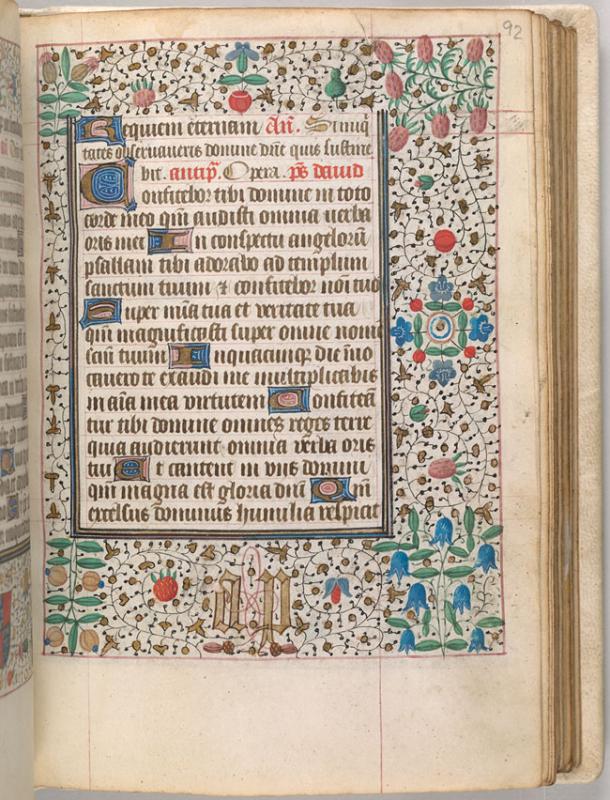 92
Requiem eternam An̄. Si iniq̄
tates observaveris domine dn̄e quis sustine
bit. antip̄. Opera. p̄s david
Confitebor tibi domine in toto
corde meo qm̄ audisti omnia verba
oris mei In conspectu angelorū
psallam tibi adorabo ad templum
sanctum tuum & confitebor noī tuo
Super mīa tua et veritate tua
qm̄ magnificasti super omne nomē
scm̄ tuum In quacunq; die īvo
cavero te exaudi me multiplicabis
in aīa mea virtutem Confiteā
tur tibi domine omnes reges terre
quia audierunt omnia verba oris
tui Et cantent in viis domini
qm̄ magna est gloria dn̄i Qm̄
excelsus dominus humilia respiciat